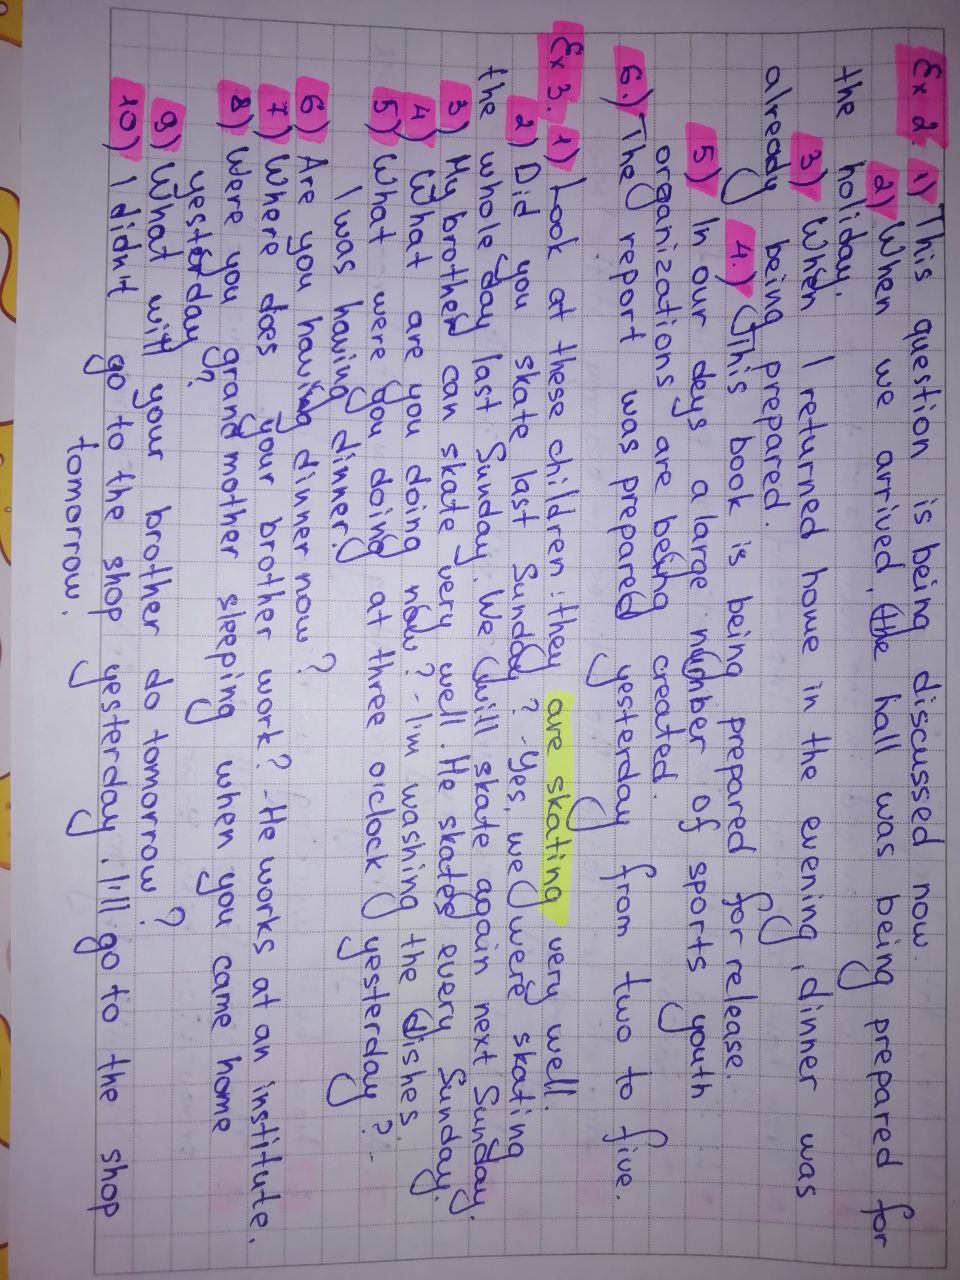 Ex 2. 1) This question is being discussed now.
2) When we arrived, the hall was being prepared for
the holiday.
3) When I returned home in the evening, dinner was
already being prepared.
4.) This book is being prepared for release.
5) In our deys a large number of sports youth
oreganizations are being created.
6.) The report was prepared yesterday from two to five.
Ex 3. 1) Look at these children: they are skating very well.
2) Did you skate last Sunday? - Yes, we were skating
the whole day last Sunday. We will skate again next Sunday.
3) My brother can skate very well. He skates every Sunday.
4) What are you doing now? - I'm washing the dishes.
5) What were you doing at three o'clock yesterday? -
I was having dinner.
6) Are you having dinner now?
7) Where does your brother work? - He works at an institute.
8) Were you grandmother sleeping when you came home
yesterday?
9) What will your brother do tomorrow?
10) I didn't go to the shop yesterday. I'll go to the shop
tomorrow.